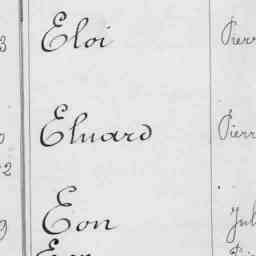 3 Eloi Pierr
Eluard Pierr
2
9 Eon Jul